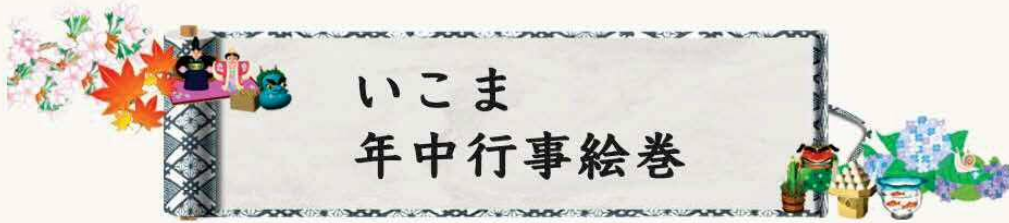 いこま
年中行事絵巻